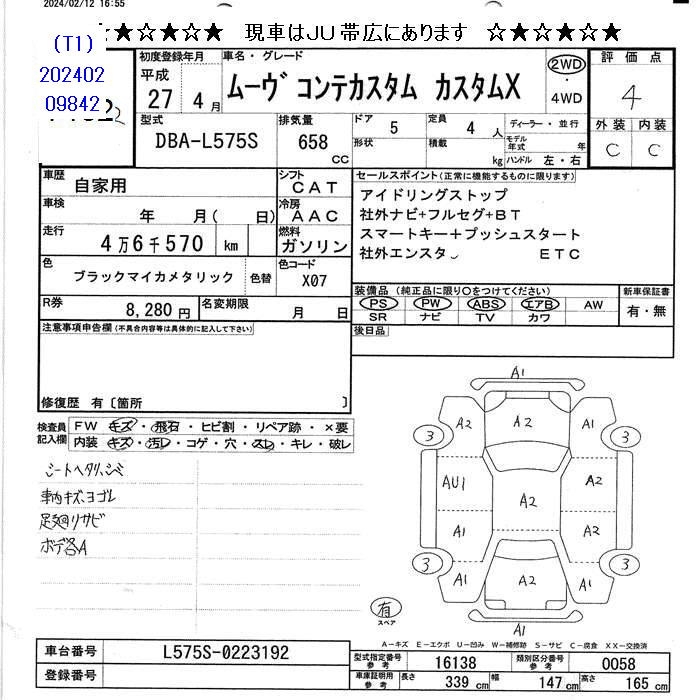 2024/02/12 16:55
★☆★☆★ 現車はJU帯広にあります ☆★☆★☆★
(T1)
202402
09842
初度登録年月
平成
27 4 月
車名・グレード
ムーヴ コンテカスタム カスタムX
2WD
・
4WD
評価点
4
外装 内装
C C
型式
DBA-L575S
排気量
658
CC
ドア 5
形状
定員 4 人
積載 kg
ディーラー・並行
モデル年式 年
ハンドル 左・右
車歴
自家用
シフト
CAT
車検
年 月( 日)
冷房
AAC
走行
4万6千570 km
燃料
ガソリン
色
ブラックマイカメタリック
色替
色コード
X07
R券
8,280円
名変期限
月 日
セールスポイント(正常に機能するものに限ります)
アイドリングストップ
社外ナビ+フルセグ+BT
スマートキー+プッシュスタート
社外エンスタ ETC
装備品(純正品に限り○をつけてください)
PS PW ABS エアB AW
SR ナビ TV カワ
新車保証書
有・無
後日品
注意事項申告欄(不具合内容等は具体的に記入して下さい)
修復歴 有〔箇所 〕
検査員
記入欄
FW キズ・飛石・ヒビ割・リペア跡・×要
内装 キズ・汚レ・コゲ・穴・スレ・キレ・破レ
シートヘタリ、シミ
車内キズ、ヨゴレ
足廻リサビ
ボデ各A
A1
A2 A2 A1
3 3
AU1 A2 A2
A1 A1
3 3
A1 A2 A1
A1
有
スペア
A－キズ E－エクボ U－凹み W－補修跡 S－サビ C－腐食 XX－交換済
車台番号
L575S-0223192
登録番号
型式指定番号
参考
16138
類別区分番号
参考
0058
車庫証明用
参考
長さ 339 cm
幅 147 cm
高さ 165 cm